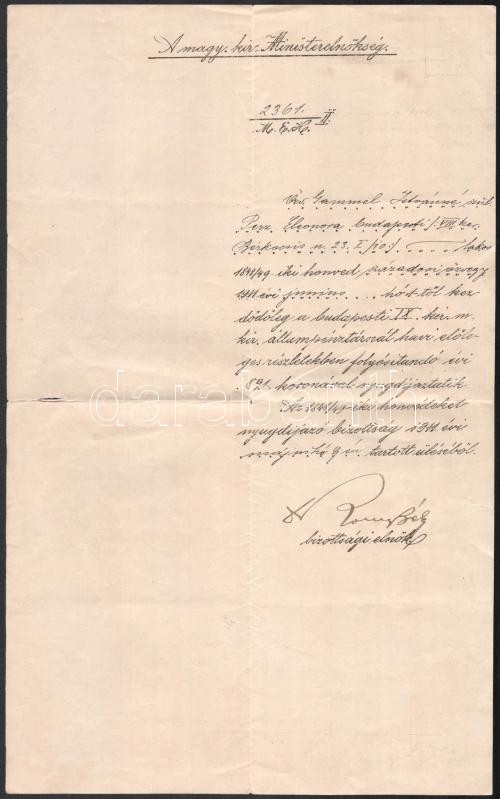 A magy. kir. Ministerelnökség.
2361.
M. E. H. II.
Özv. Gammel Istvánné szül
Perz Eleonora budapesti /:VIII ker.
Bérkocsis u. 23. I/10:/ lakos
1848/49-iki honved századosi özvegy
1911 évi június hó 1-től kez
dődőleg a budapesti IX. keri m.
kir. állampénztárnál havi előle-
ges részletekben folyósítandó évi
koronával nyugdíjaztatik
Az 1848/49-iki honvédeket
nyugdíjazó bizottság 1911 évi
majus hó 9 én tartott üléséből.
bizottsági elnök
darabanth